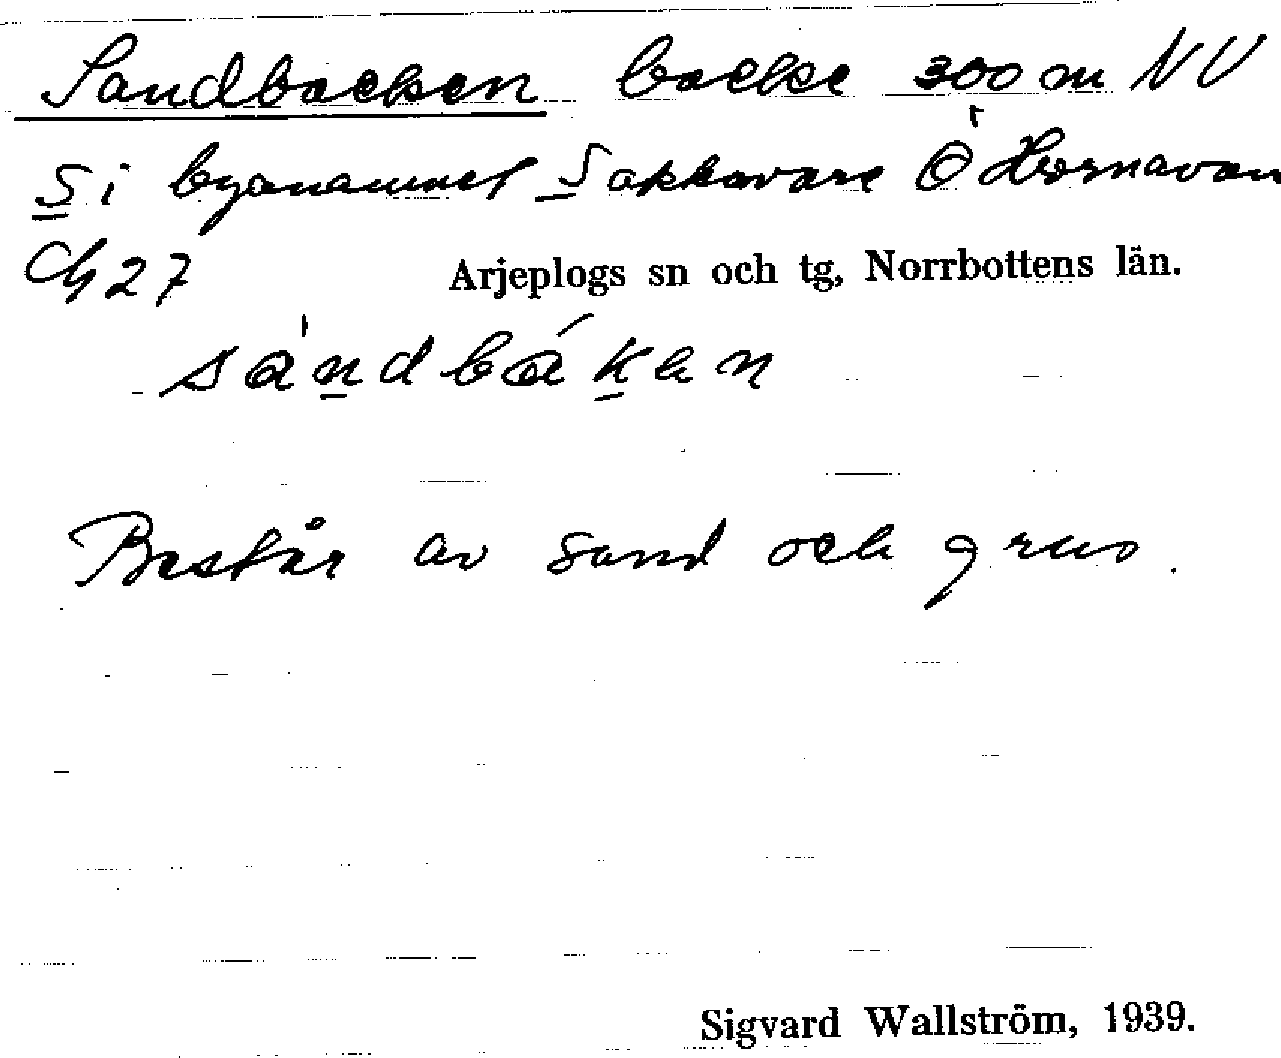 Sandbacken backe 300 m NV
S i bynamnet Sakkavare Ö Hornavan
27 Arjeplogs sn och tg, Norrbottens län.
sandbaken
Består av sand och grus.
Sigvard Wallström, 1939.